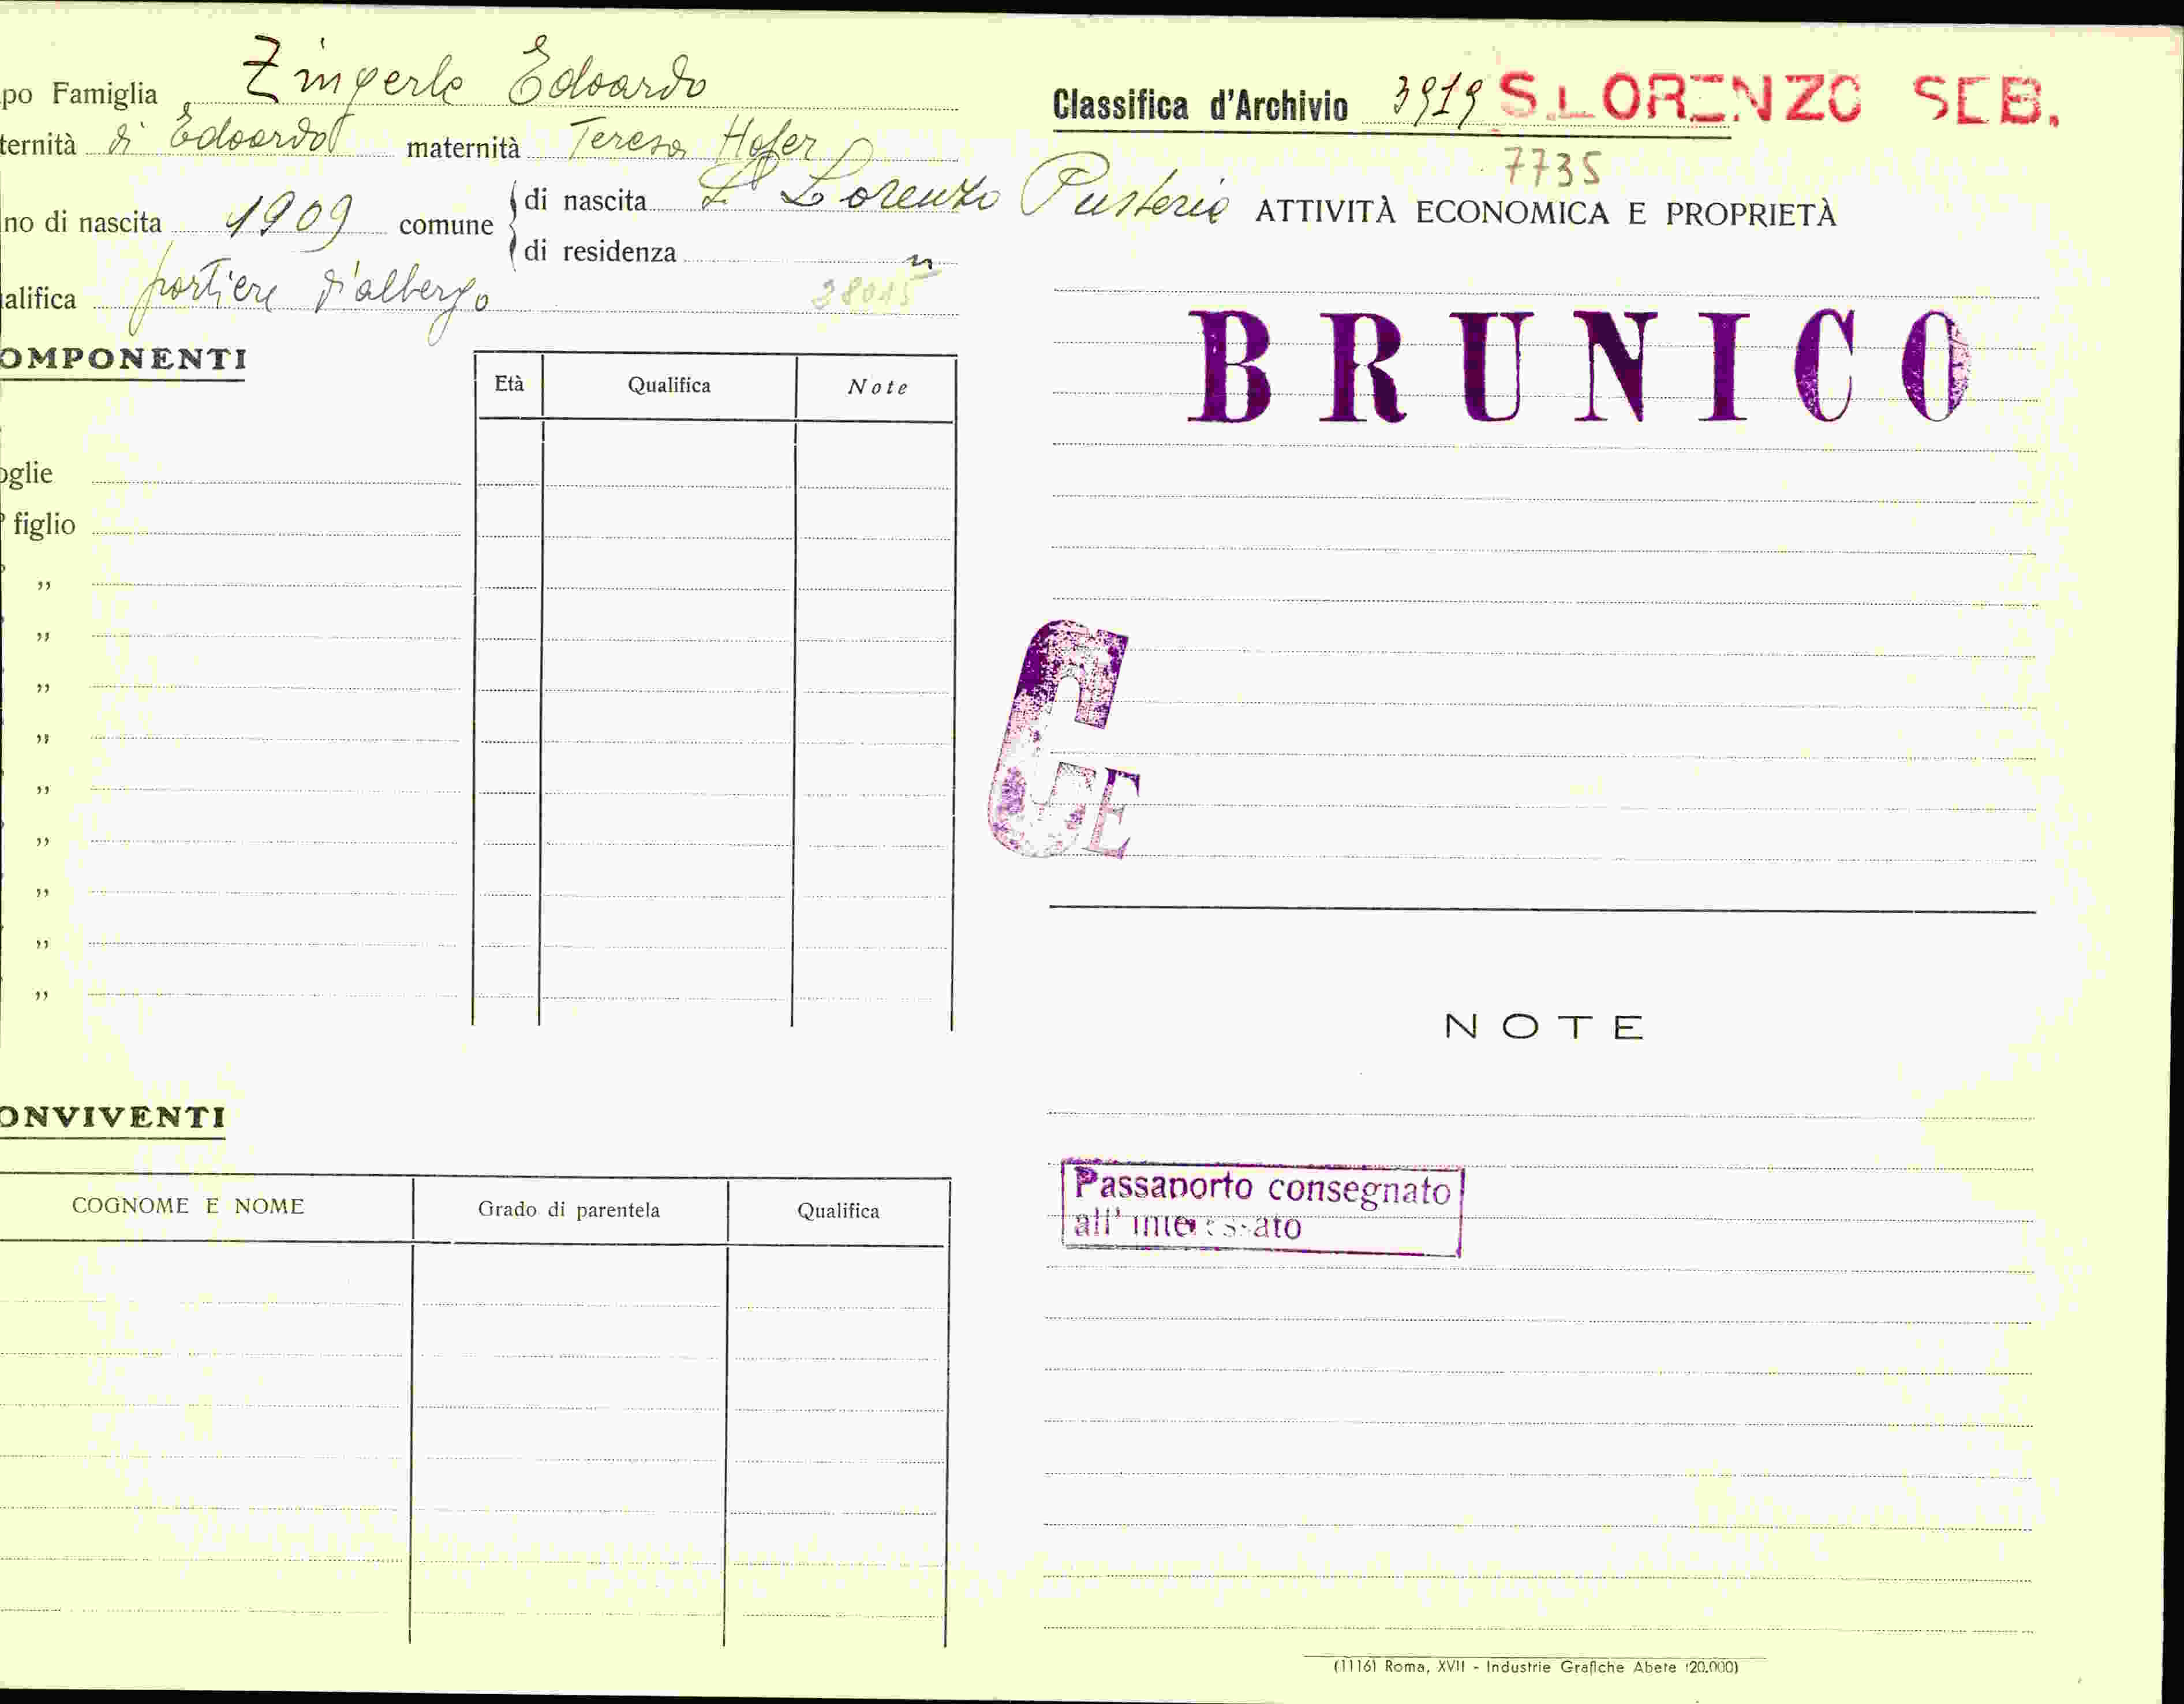 po Famiglia Zingerle Edoardo
ternità di Edoardo maternità Teresa Hofer
no di nascita 1909 comune di nascita S. Lorenzo Pusteria
di residenza "
alifica portiere d'albergo 38015
OMPONENTI
Età Qualifica Note
oglie
° figlio
"
"
"
"
"
"
"
"
"
ONVIVENTI
COGNOME E NOME Grado di parentela Qualifica
Classifica d'Archivio 3919 S.LORENZO SEB.
7735
ATTIVITÀ ECONOMICA E PROPRIETÀ
BRUNICO
CFE
NOTE
Passaporto consegnato
all'interessato
(1116) Roma, XVII - Industrie Grafiche Abete (20.000)